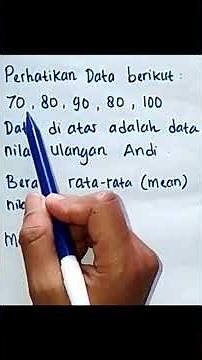 Perhatikan Data berikut :
70 , 80 , 90 , 80 , 100
Dat di atas adalah data
nila ulangan Andi
Bera rata-rata (mean)
ni
M